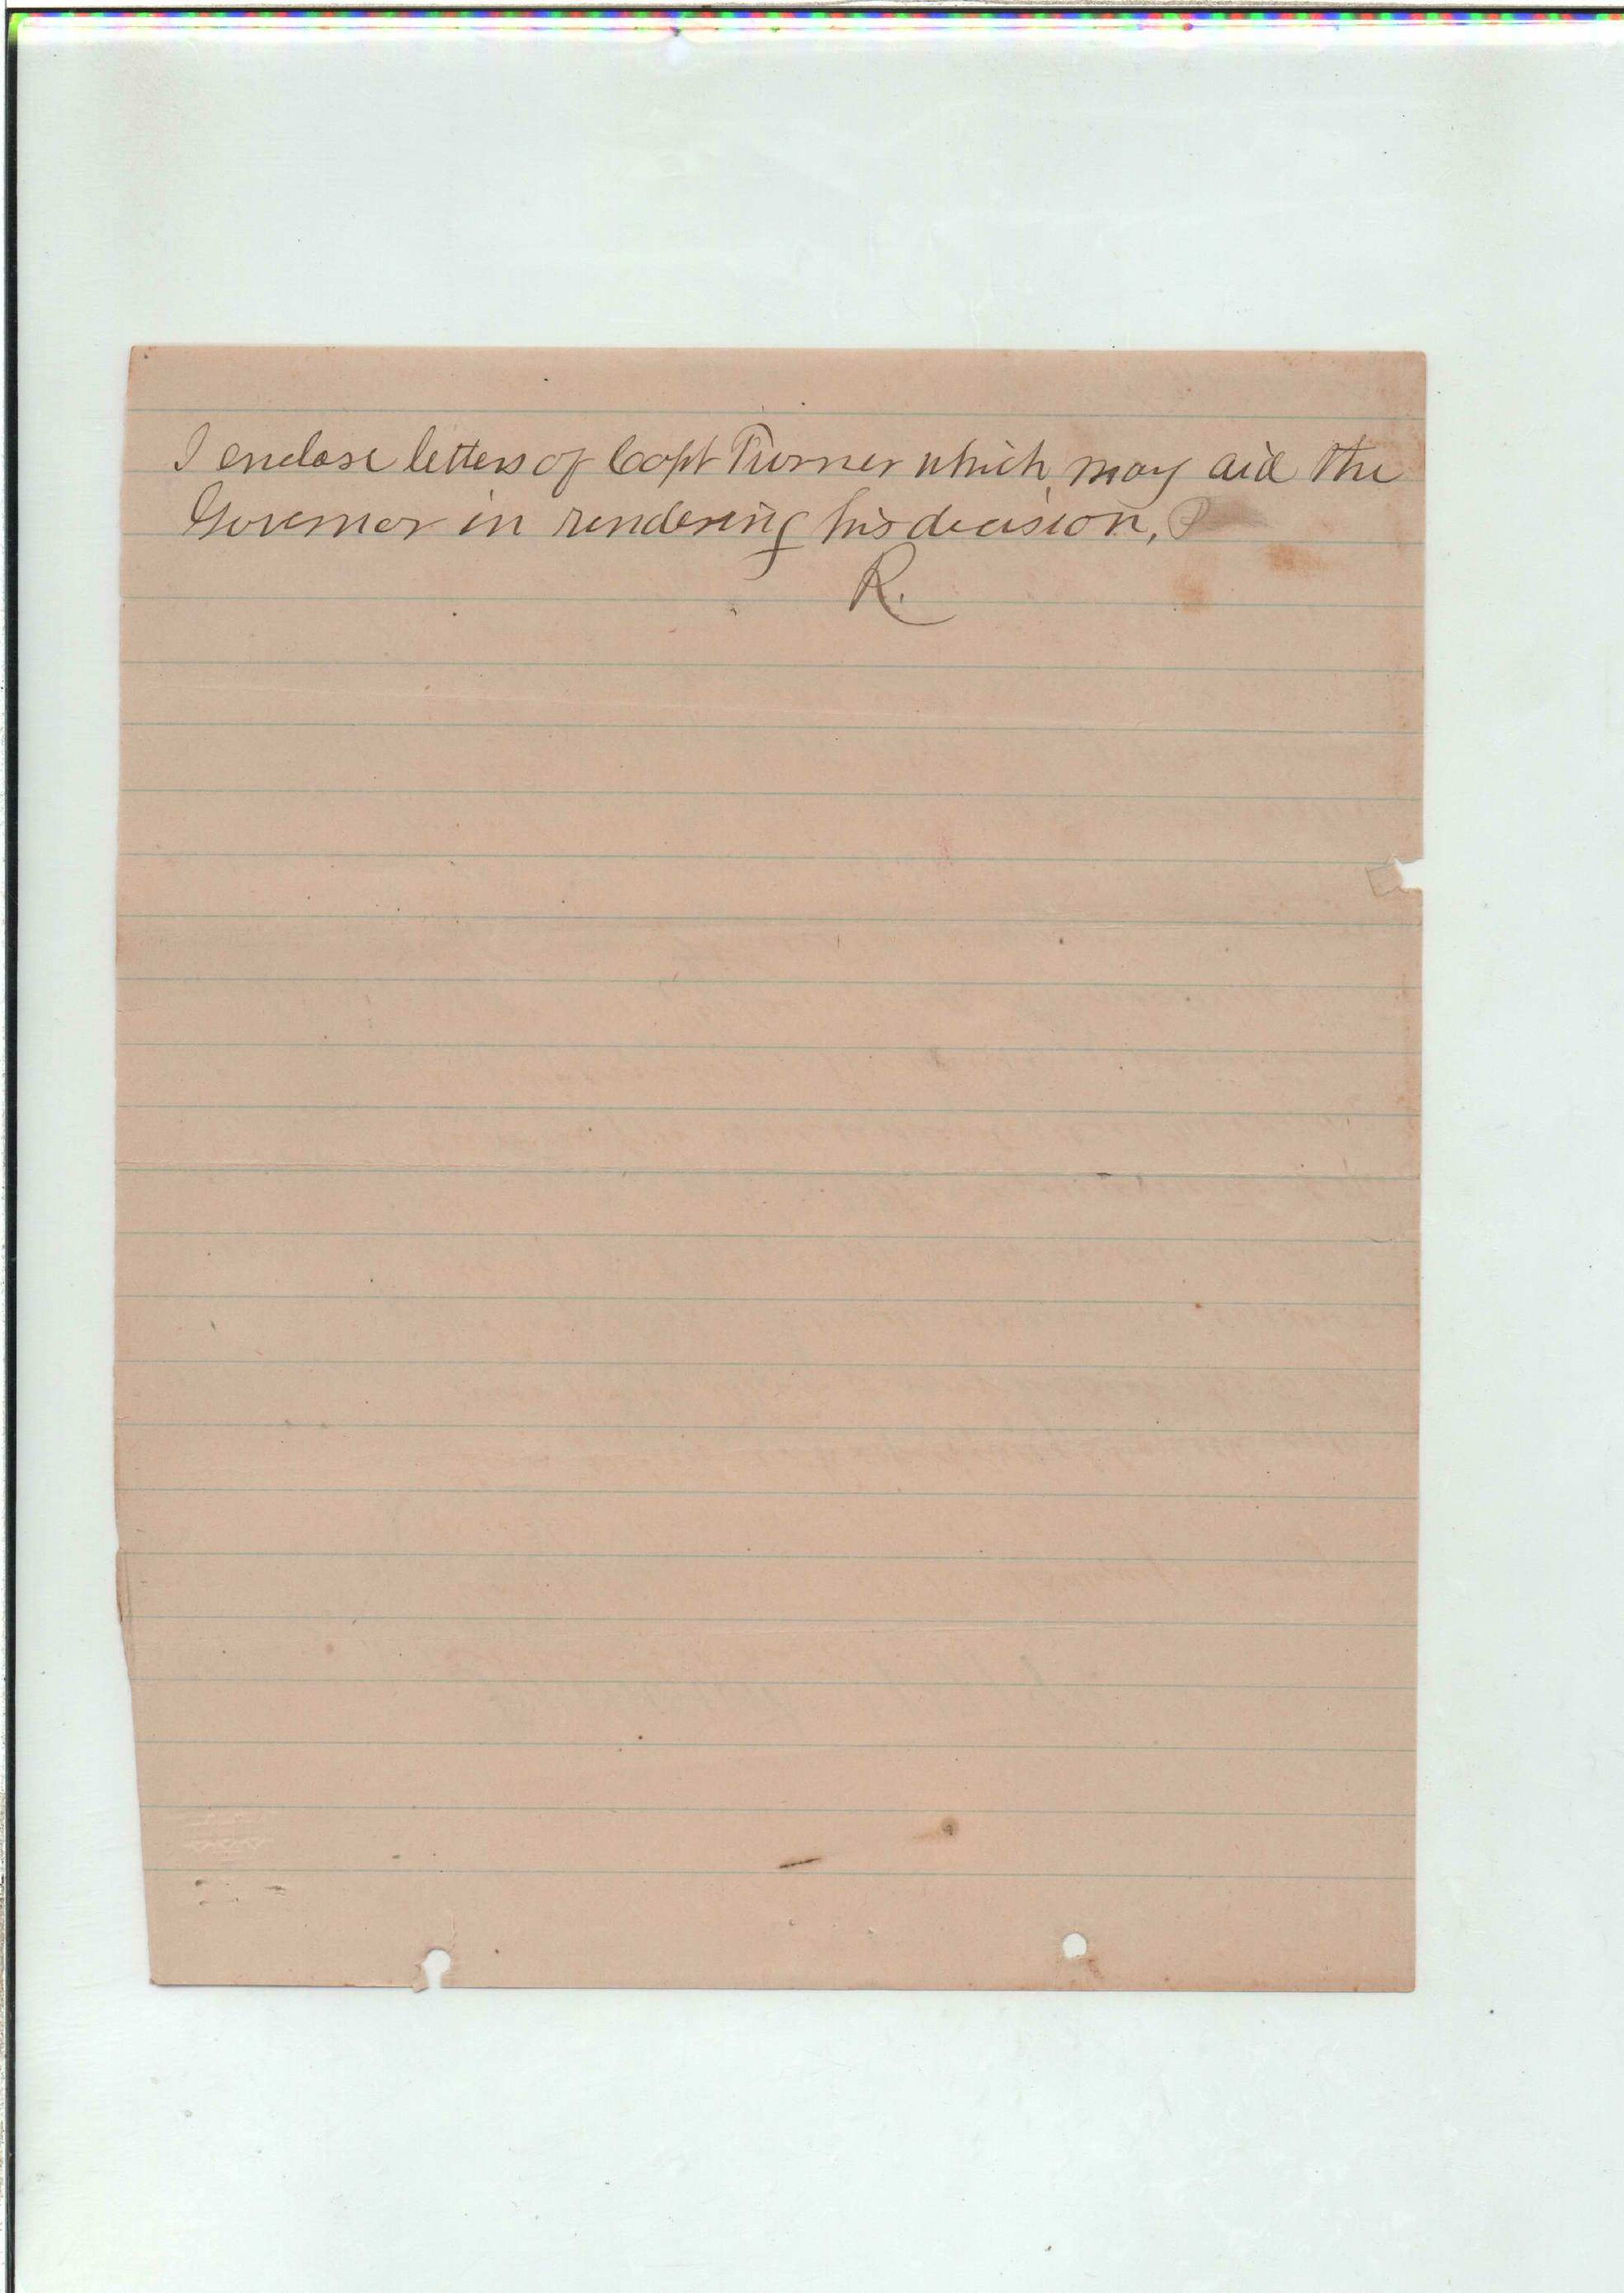 I enclose letters of Capt Turner which may aid the
Governor in rendering his decision,
R.